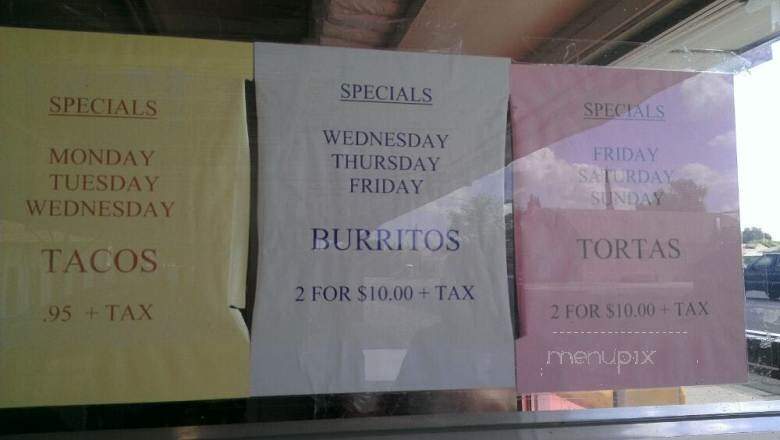 SPECIALS
MONDAY
TUESDAY
WEDNESDAY
TACOS
.95 + TAX
SPECIALS
WEDNESDAY
THURSDAY
FRIDAY
BURRITOS
2 FOR $10.00 + TAX
SPECIALS
FRIDAY
SATURDAY
SUNDAY
TORTAS
2 FOR $10.00 + TAX
menupix